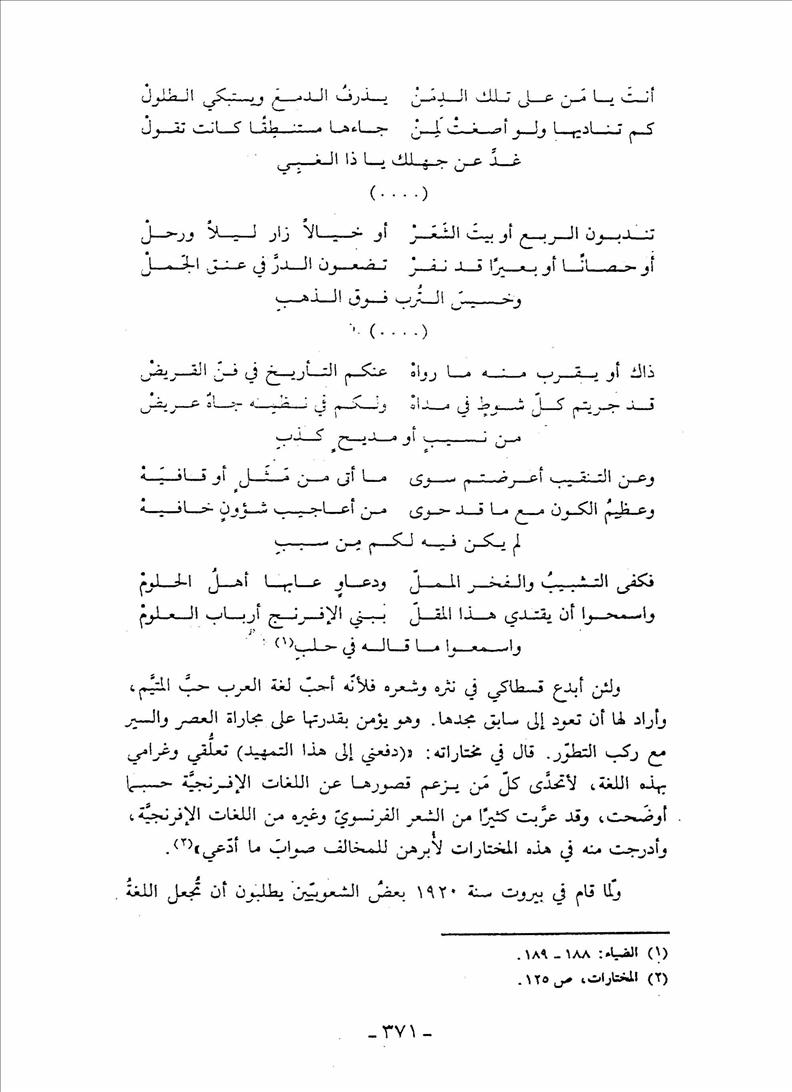 أنتَ يـا مَن عـلى تـلك الـدِمَنْ يـذرفُ الـدمـعَ ويستبكي الـطلولْ
كـم تـنـاديهـا ولـو أصـغـتْ لَمِنْ جـاءهـا مستنـطِقًـا كـانت تقـولْ
غـدَّ عـن جـهـلك يـا ذا الـغـبِـي
(....)
تنـدبـون الـربـع أو بيتَ الشَعَـرْ أو خـيـالاً زار لـيـلاً ورحـلْ
أو حـصـانًـا أو بـعـيرًا قـد نـفـرْ تـضعـون الـدرَّ في عـنق الجَمـلْ
وخـسيسَ الـتُرب فـوق الـذهـبِ
(....)
ذاك أو يـقـرب مـنـه مـا رواهْ عنكـم التـأريـخ في فـنّ القـريضْ
قـد جـريتم كـلّ شـوطٍ في مـداهْ ولـكـم في نـظـيـمـه جـاهٌ عـريضْ
مـن نـسيبٍ أو مـديـحٍ كـذبِ
وعـن التنـقيب أعـرضـتـم سـوى مـا أتى مـن مَـثَـلٍ أو قـافـيَـهْ
وعـظيمُ الكـون مـع مـا قـد حـوى مـن أعـاجـيـب شـؤونٍ خـافـيـهْ
لم يـكـن فـيـه لـكـم مِـن سـبـبِ
فكفى التـشبـيبُ والـفخـر الممـلّ ودعـاوٍ عـابهـا أهـلُ الحـلومْ
واسمحـوا أن يقتـدي هـذا المقـلّ بَـبـني الإفـرنـج أربـاب العـلومْ
واسمعـوا مـا قـالـه في حـلبِ(١) :
ولئن أبدع قسطاكي في نثره وشعره فلأنّه أحبّ لغة العرب حبَّ المتيَّم،
وأراد لها أن تعود إلى سابق مجدها. وهو يؤمن بقدرتها على مجاراة العصر والسير
مع ركب التطوّر. قال في مختاراته: «(دفعني إلى هذا التمهيد) تعلُّقي وغرامي
بهذه اللغة، لأتحدَّى كلّ مَن يزعم قصورها عن اللغات الإفرنجيَّة حسبما
أوضحت، وقد عرَّبت كثيرًا من الشعر الفرنسويّ وغيره من اللغات الإفرنجيَّة،
وأدرجت منه في هذه المختارات لأبرهن للمخالف صوابَ ما أدّعي»(٢).
ولمّا قام في بيروت سنة ١٩٢٠ بعضُ الشعوبيّين يطلبون أن تُجعل اللغةُ
(١) الضياء: ١٨٨ ـ ١٨٩.
(٢) المختارات، ص ١٢٥.
ـ ٣٧١ ـ